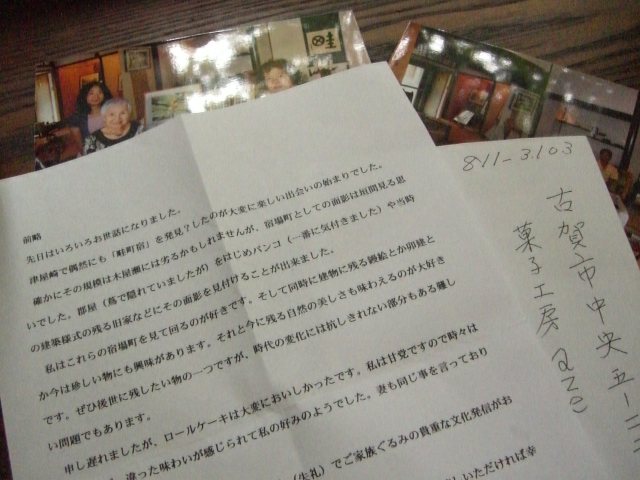 前略
先日はいろいろお世話になりました。
津屋崎で偶然にも「畦町宿」を発見?したのが大変に楽しい出会いの始まりでした。
確かにその規模は木屋瀬には劣るかもしれませんが、宿場町としての面影は垣間見る思
いでした。郡屋(蔦で隠れていましたが)をはじめバンコ(一番に気付きました)や当時
の建築様式の残る旧家などにその面影を見付けることが出来ました。
私はこれらの宿場町を見て回るのが好きです。そして同時に建物に残る鏝絵とか卯建と
か今は珍しい物にも興味があります。それと今に残る自然の美しさも味わえるのが大好き
です。ぜひ後世に残したい物の一つですが、時代の変化には抗しきれない部分もある難し
い問題でもあります。
申し遅れましたが、ロールケーキは大変においしかったです。私は甘党ですので時々は
違った味わいが感じられて私の好みのようでした。妻も同じ事を言っており
(失礼)でご家族ぐるみの貴重な文化発信がお
いただければ幸
811-3103
古賀市中央五-
菓子工房
畦